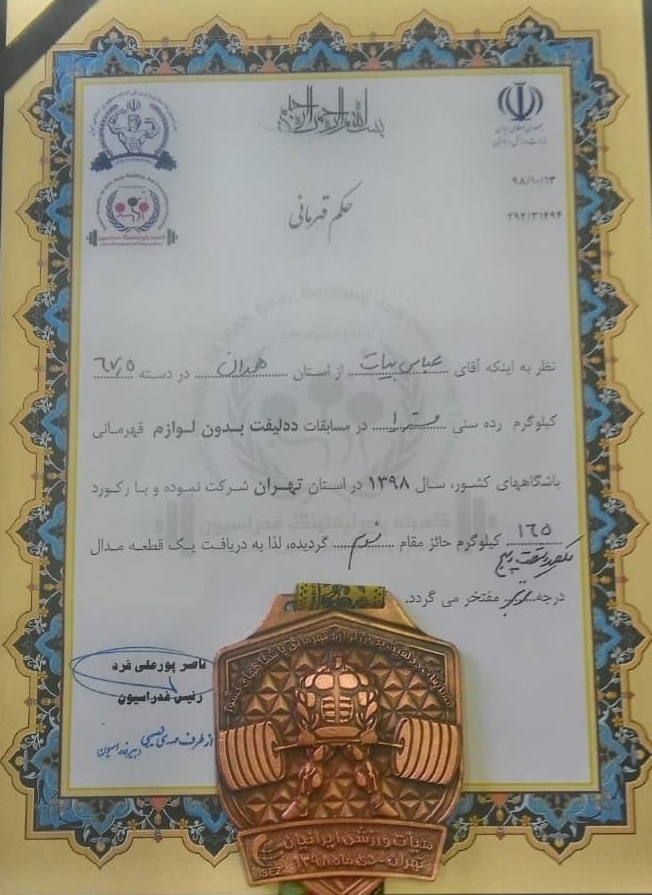 بسم الله الرحمن الرحیم
جمهوری اسلامی ایران
وزارت ورزش و جوانان
۹۸/۱۰/۱۳
۲۹۲/۳۱۴۹۴
حکم قهرمانی
نظر به اینکه آقای عباس بیات از استان همدان در دسته ۶۷٫۵
کیلوگرم رده سنی مستر ۱ در مسابقات ددلیفت بدون لوازم قهرمانی
باشگاههای کشور، سال ۱۳۹۸ در استان تهران شرکت نموده و با رکورد
۱۶۵ کیلوگرم حائز مقام سوم گردیده، لذا به دریافت یک قطعه مدال
یکصد و شصت و پنج
درجه مفتخر می گردد.
ناصر پورعلی فرد
رئیس فدراسیون
از طرف مهدی نصیبی
دبیر فدراسیون
کمیته پاورلیفتینگ فدراسیون
هیأت ورزشی ایرانیان
تهران - دی ماه ۱۳۹۸